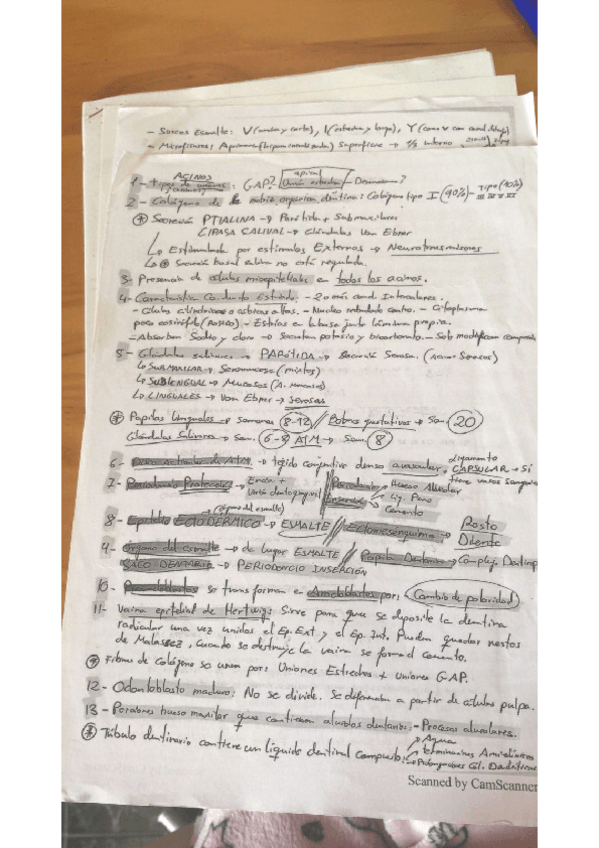 - Surcos Esmalte: V (ancha y corta), I (estrecha y larga), Y (como V con canal debajo)
- Microfisuras: Superficie → 1/3 interno
ACINOS
1- tipos de uniones: GAP? apical Unión estrecha - Desmosoma?
2- Colágeno de la matriz orgánica dentina: Colágeno tipo I (90%) - Tipo (10%) III IV V VI
* Secreción PTIALINA → Parótida + Submaxilares
LIPASA SALIVAL → Glándulas Von Ebner
↳ Estimulada por estímulos Externos → Neurotransmisores
↳ * Secreción basal saliva no está regulada.
3- Presencia de células mioepiteliales en todos los acinos.
4- Característica Conducto Estriado: - 2 o más cond. Intercalares.
- Células cilíndricas o cúbicas altas. - Núcleo redondo centro. - Citoplasma
poco eosinófilo (ROSEO) - Estrías en la base junto lámina propia.
- Absorben Sodio y cloro → Secretan potasio y bicarbonato. - Solo modifican
5- Glándulas salivares → PARÓTIDA → Secreción Serosa. (Acinos Serosos)
↳ SUBMAXILAR → Seromucosa (mixtos)
↳ SUBLINGUAL → Mucosas (A. mucosos)
↳ LINGUALES → Von Ebner → serosas
* Papilas Linguales → semanas 8-12 // Botones gustativos → Sem. 20
Glándulas Salivares → Sem. 6-8 ATM → Sem. 8
6- Disco Articular de ATM. → tejido conjuntivo denso avascular. Ligamento CAPSULAR → Sí tiene vasos sanguíneos
7- Periodonto Protección → Encía + Unión dentogingival // Periodonto Inserción → Hueso Alveolar
→ Lig. Perio
Cemento
(órgano del esmalte)
8- Epitelio ECTODÉRMICO → ESMALTE // Ectomesenquima → Resto Diente
9- Órgano del esmalte → da lugar ESMALTE // Papila Dentaria → Complejo Dentinop
SACO DENTARIO → PERIODONCIO INSERCIÓN
10- Preameloblastos se transforman en Ameloblastos por: Cambio de polaridad
11- Vaina epitelial de Hertwig: Sirve para que se deposite la dentina
radicular una vez unidos el Ep. Ext y el Ep. Int. Pueden quedar restos
de Malassez, cuando se destruye la vaina se forma el cemento.
* Fibras de Colágeno se unen por: Uniones Estrechas + uniones GAP.
12- Odontoblasto maduro: No se divide. Se deforman a partir de células pulpa.
13- Porciones hueso maxilar que contienen alvéolos dentarios: - Procesos alveolares.
* Túbulo dentinario contiene un líquido dentinal compuesto: → Agua
→ terminaciones Amielínicas
→ Prolongaciones
Scanned by CamScanner